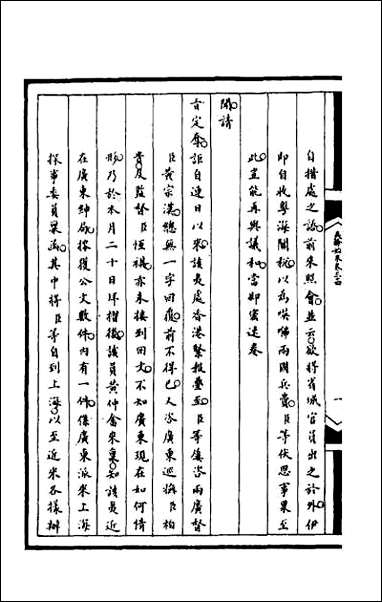 自措處之語前來照會並云欲將省城官員出之於外伊
即自收粵海關稅以為𠸄咈兩國兵費臣等伏思事果至
此豈能再與議和當即密速奏
聞請
旨定奪詎自連日以來該夷處香港緊報疊至臣等屢咨兩廣督
臣黃宗漢總無一字回覆前不得已又咨廣東巡撫臣柏
貴及監督臣恆祺亦未接到回文不知廣東現在如何情
形乃於本月二十日拜摺後議員黃仲畬來稟知該夷近
在廣東紳局搜獲公文數件內有一件係廣東派來上海
探事委員稟函其中將臣等自到上海以至近來各樣辦
籌辦夷務始末卷三十四
一